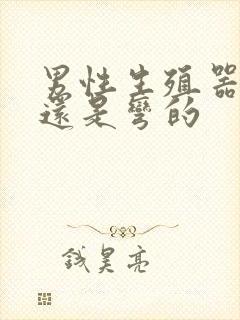 男性生殖器
還是彎的
錢昊亮